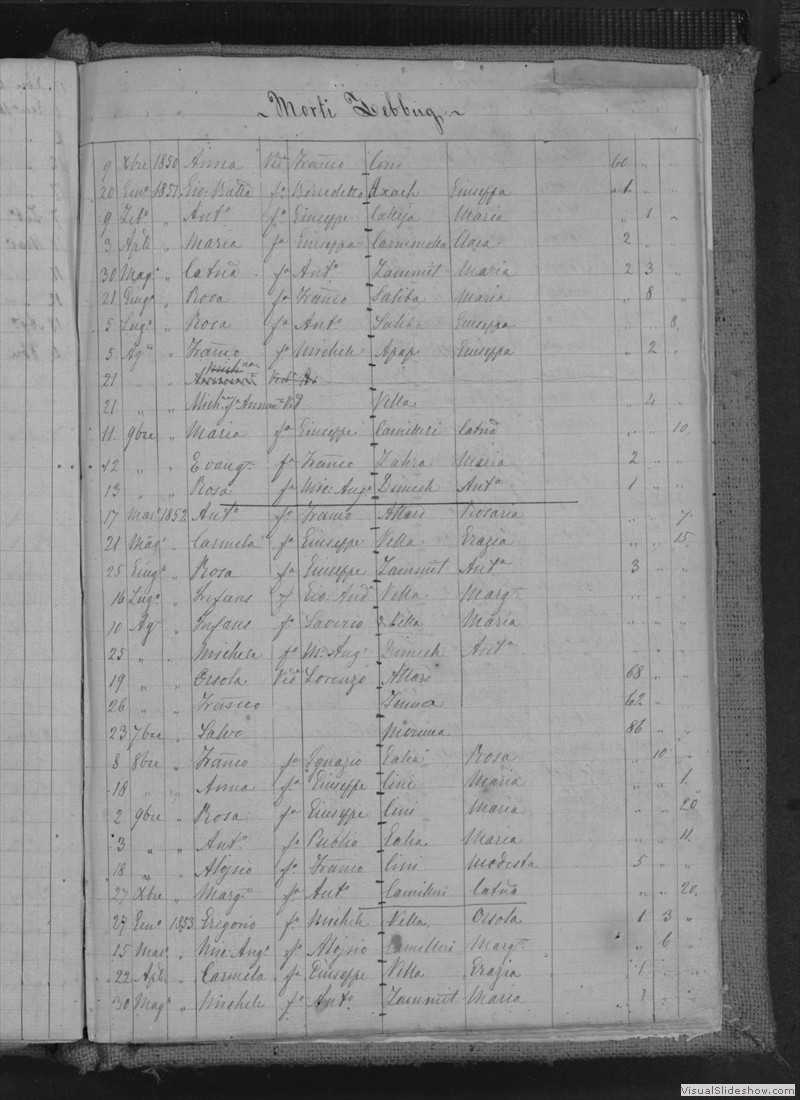 Morti Zebbug
9 Xbre 1850 Anna Vid Franco Cini 60 " "
20 Gen° 1851 Gio: Batta f° Benedetto Axach Giuseppa " 1 "
9 Feb° " Ant° f° Giuseppe Calleja Maria " 1 "
3 Aple " Maria f° Giuseppe Agia 2 " "
30 Mag° " Catña f° Ant° Zammit Maria 2 3 "
21 Giug° " Rosa f° Franco Saliba Maria " 8 "
5 Lug° " Rosa f° Ant° Saliba Giuseppa " " 8
5 Ag° " Franco f° Michele Apap Giuseppa " 2 "
21 " "
21 " " Mich. Vella " 4
11 9bre " Maria f° Giuseppe Camilleri Catña " " 10
12 " " Evang. f° Franco Zahra Maria 2 " "
13 " " Rosa f° Mic: Ang° Dimech Anta 1 " "
17 Mar° 1852 Ant° f° Franco Attard Rosaria " " 7
21 Mag° " Carmela f° Giuseppe Vella Grazia " " 15
25 Giug° " Rosa f° Giuseppe Zammit Anta 3 " "
16 Lug° " Infans f° Gio: And. Vella Marg. " " "
10 Ag° " Infans f° Saverio Vella Maria " " "
25 " " Michele f° M: Ang° Dimech Anta " " "
19 " " Orsola Vid Lorenzo Attard 68 " "
26 " " 62 " "
23 7bre " Salvo 86 " "
8 8bre " Franco f° Ignazio Galia Rosa " 10 "
18 " " Anna f° Giuseppe Cini Maria " " 1
2 9bre " Rosa f° Giuseppe Cini Maria " " 20
3 " " Ant° f° Publio Galia Maria " " 11
18 " " Aloisio f° Franco Cini Modesta 5 " "
27 Xbre " Marg. f° Ant° Camilleri Catña " " 20
27 Gen° 1853 Gregorio f° Michele Vella Orsola 1 3 "
15 Mar° " Mic: Ang° f° Aloisio Camilleri Marg. " 6 "
22 Aple " Carmela f° Giuseppe Vella Grazia 1 " "
30 Mag° " Michele f° Ant° Zammit Maria 1 " "
VisualSlideshow.com